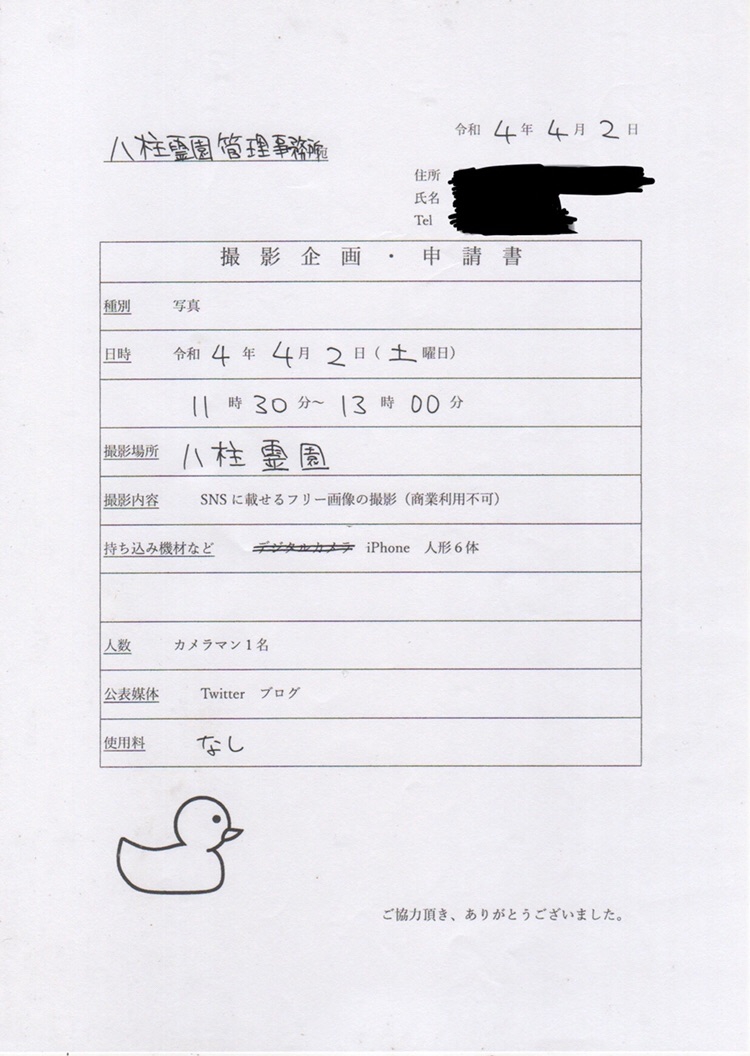 令和 4 年 4 月 2 日
八柱霊園管理事務所
住所
氏名
Tel
撮影企画・申請書
種別 写真
日時 令和 4 年 4 月 2 日（土曜日）
11 時 30 分〜 13 時 00 分
撮影場所 八柱霊園
撮影内容 SNSに載せるフリー画像の撮影（商業利用不可）
持ち込み機材など デジタルカメラ iPhone 人形６体
人数 カメラマン１名
公表媒体 Twitter ブログ
使用料 なし
ご協力頂き、ありがとうございました。